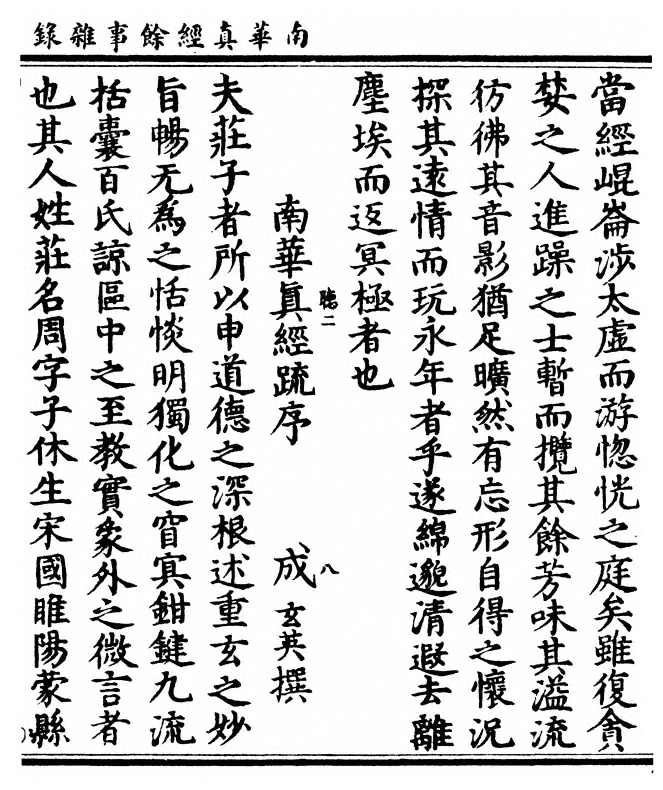 南華真經餘事雜錄
當經崐崙涉太虛而游惚恍之庭矣雖復貪
婪之人進躁之士暫而攬其餘芳味其溢流
彷彿其音影猶足曠然有忘形自得之懷況
探其遠情而玩永年者乎遂綿邈清遐去離
塵埃而返冥極者也
聽二 八
南華真經疏序 成玄英撰
夫莊子者所以申道德之深根述重玄之妙
旨暢无為之恬惔明獨化之窅冥鉗鍵九流
括囊百氏諒區中之至教實象外之微言者
也其人姓莊名周字子休生宋國睢陽蒙縣